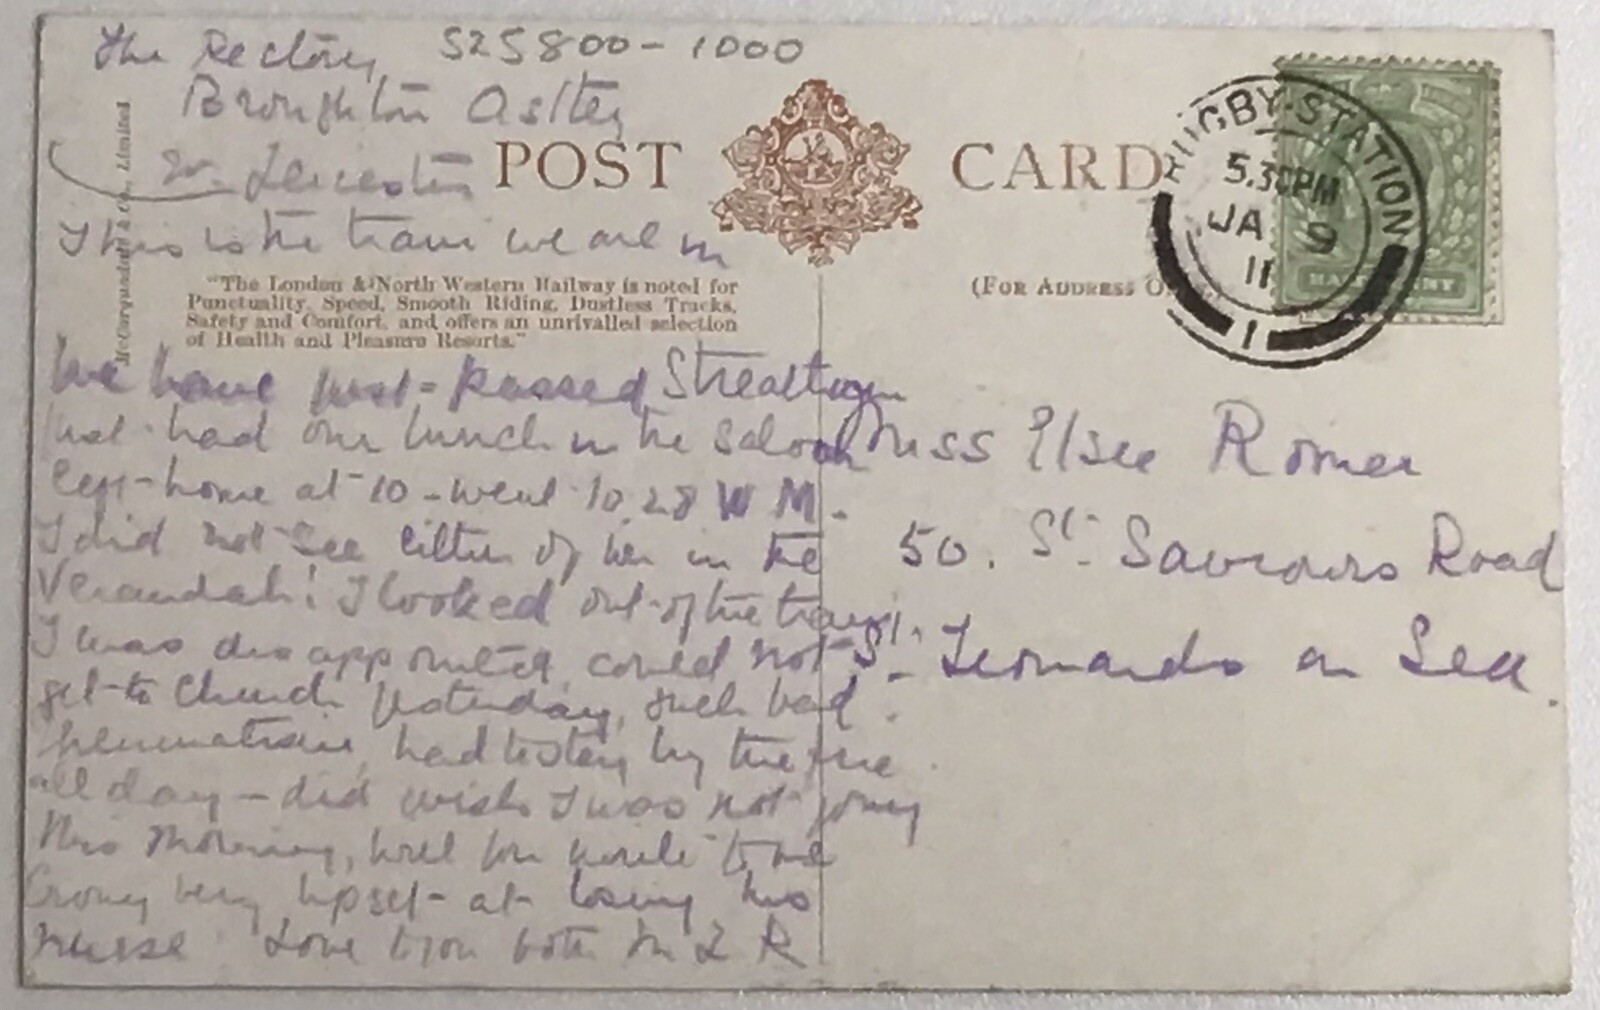 The Rectory, 525800-1000
Broughton Astley
Nr. Leicester
POST CARD
McCorquodale & Co., Limited
RUGBY·STATION
5.30PM
JA 9
11
1
HALFPENNY
This is the train we are in
"The London & North Western Railway is noted for
Punctuality, Speed, Smooth Riding, Dustless Tracks,
Safety and Comfort, and offers an unrivalled selection
of Health and Pleasure Resorts."
(FOR ADDRESS O
We have just passed
just had our lunch in the saloon
left home at 10 - went 10.28 W M.
I did not see either of her in the
Verandah! I looked out of the train.
I was disappointed, could not
get to Church yesterday, such bad
rheumatism, had to stay by the fire
all day - did wish I was not going
this morning, will you write to me
very upset at losing his
nurse Love to you both M L R
Miss Elsie Romer
50. St. Saviours Road
St. Leonards on Sea.